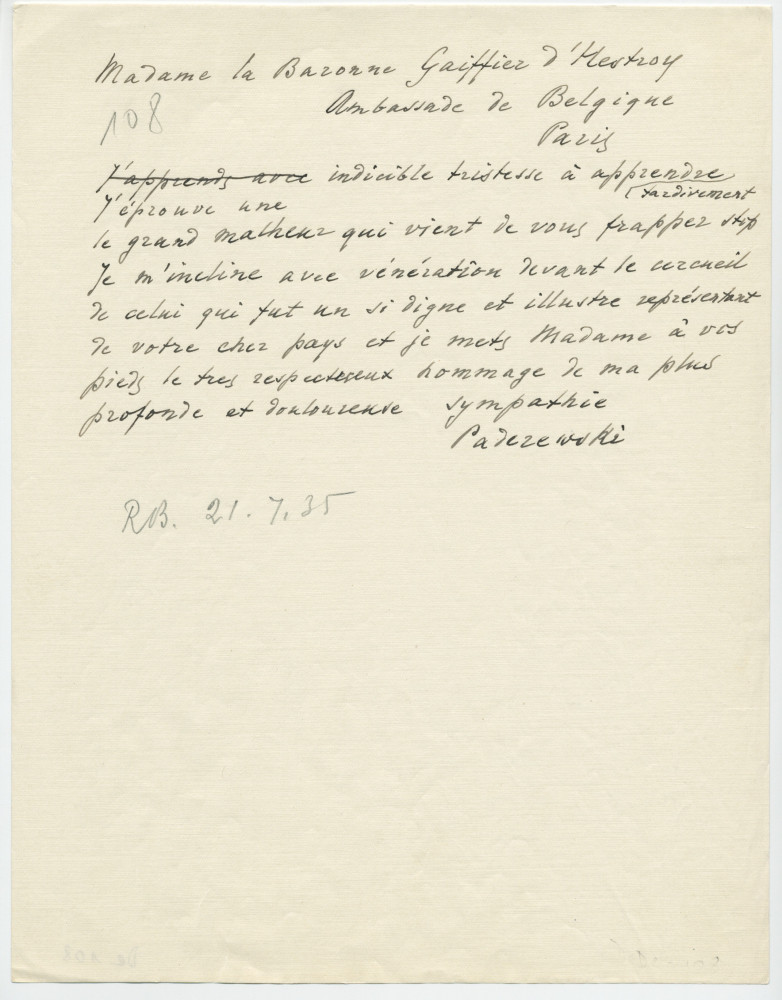 Madame la Baronne Gaiffier d'Hestroy
Ambassade de Belgique
108
Paris
J'apprends avec indicible tristesse à apprendre
tardivement
J'éprouve une
le grand malheur qui vient de vous frapper stop
Je m'incline avec vénération devant le cercueil
de celui qui fut un si digne et illustre représentant
de votre cher pays et je mets Madame à vos
pieds le tres respectueux hommage de ma plus
profonde et douloureuse sympathie
Paderewski
RB. 21.7.35